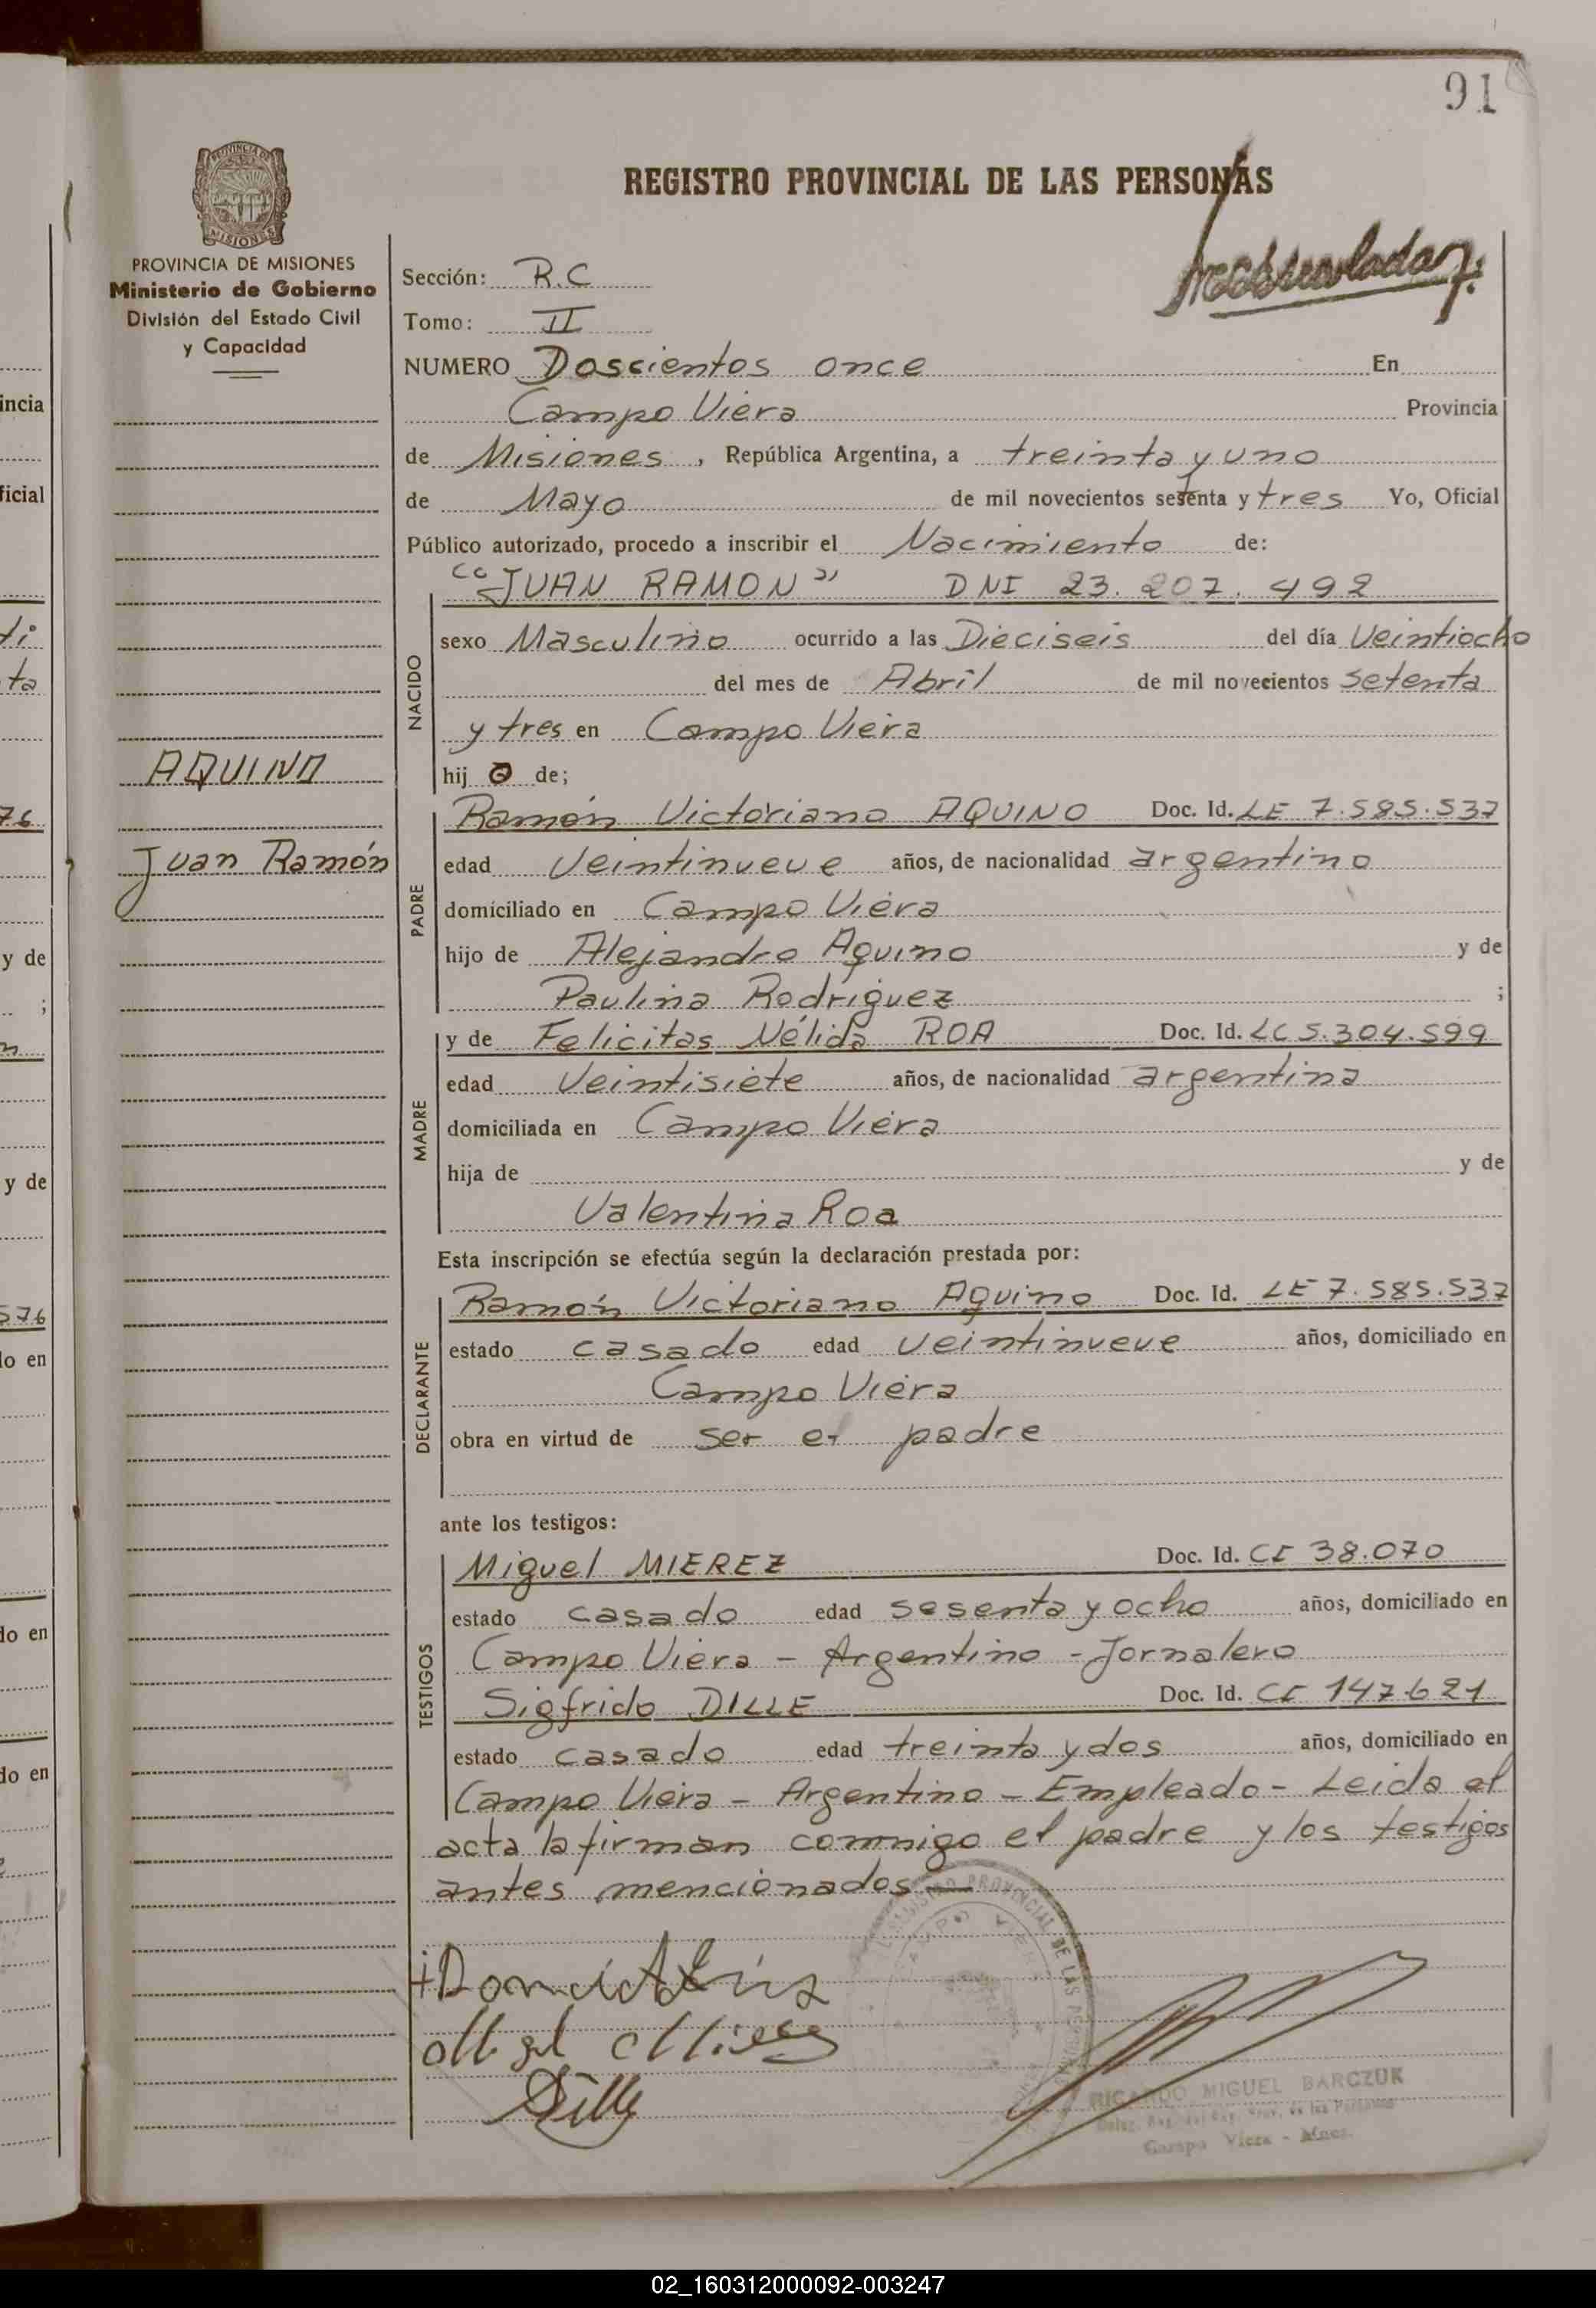 91
REGISTRO PROVINCIAL DE LAS PERSONAS
PROVINCIA DE MISIONES
MISIONES
Ministerio de Gobierno
División del Estado Civil
y Capacidad
Sección: R.C
Tomo: II
NUMERO Doscientos once En
Campo Viera Provincia
de Misiones, República Argentina, a treinta y uno
de Mayo de mil novecientos setenta y tres Yo, Oficial
Público autorizado, procedo a inscribir el Nacimiento de:
"JUAN RAMON" DNI 23.207.492
NACIDO
sexo Masculino ocurrido a las Dieciseis del día Veintiocho
del mes de Abril de mil novecientos setenta
y tres en Campo Viera
hijo de;
AQUINO
Juan Ramón
PADRE
Ramón Victoriano AQUINO Doc. Id. LE 7.585.537
edad Veintinueve años, de nacionalidad argentino
domiciliado en Campo Viera
hijo de Alejandro Aquino y de
Paulina Rodríguez ;
MADRE
y de Felicitas Nélida ROA Doc. Id. LC 5.304.599
edad Veintisiete años, de nacionalidad argentina
domiciliada en Campo Viera
hija de y de
Valentina Roa
Esta inscripción se efectúa según la declaración prestada por:
DECLARANTE
Ramón Victoriano Aquino Doc. Id. LE 7.585.537
estado casado edad veintinueve años, domiciliado en
Campo Viera
obra en virtud de ser el padre
ante los testigos:
TESTIGOS
Miguel MIEREZ Doc. Id. CI 38.070
estado casado edad sesenta y ocho años, domiciliado en
Campo Viera - Argentino - Jornalero
Sigfrido DILLE Doc. Id. CI 147.621
estado casado edad treinta y dos años, domiciliado en
Campo Viera - Argentino - Empleado - Leida el
acta la firman conmigo el padre y los testigos
antes mencionados
PROVINCIAL DE LAS
Dille
RICARDO MIGUEL BARCZUK
Campo Viera - Mnes.
incia
ficial
ti
ta
76
y de
;
y de
576
do en
do en
do en
02_160312000092-003247